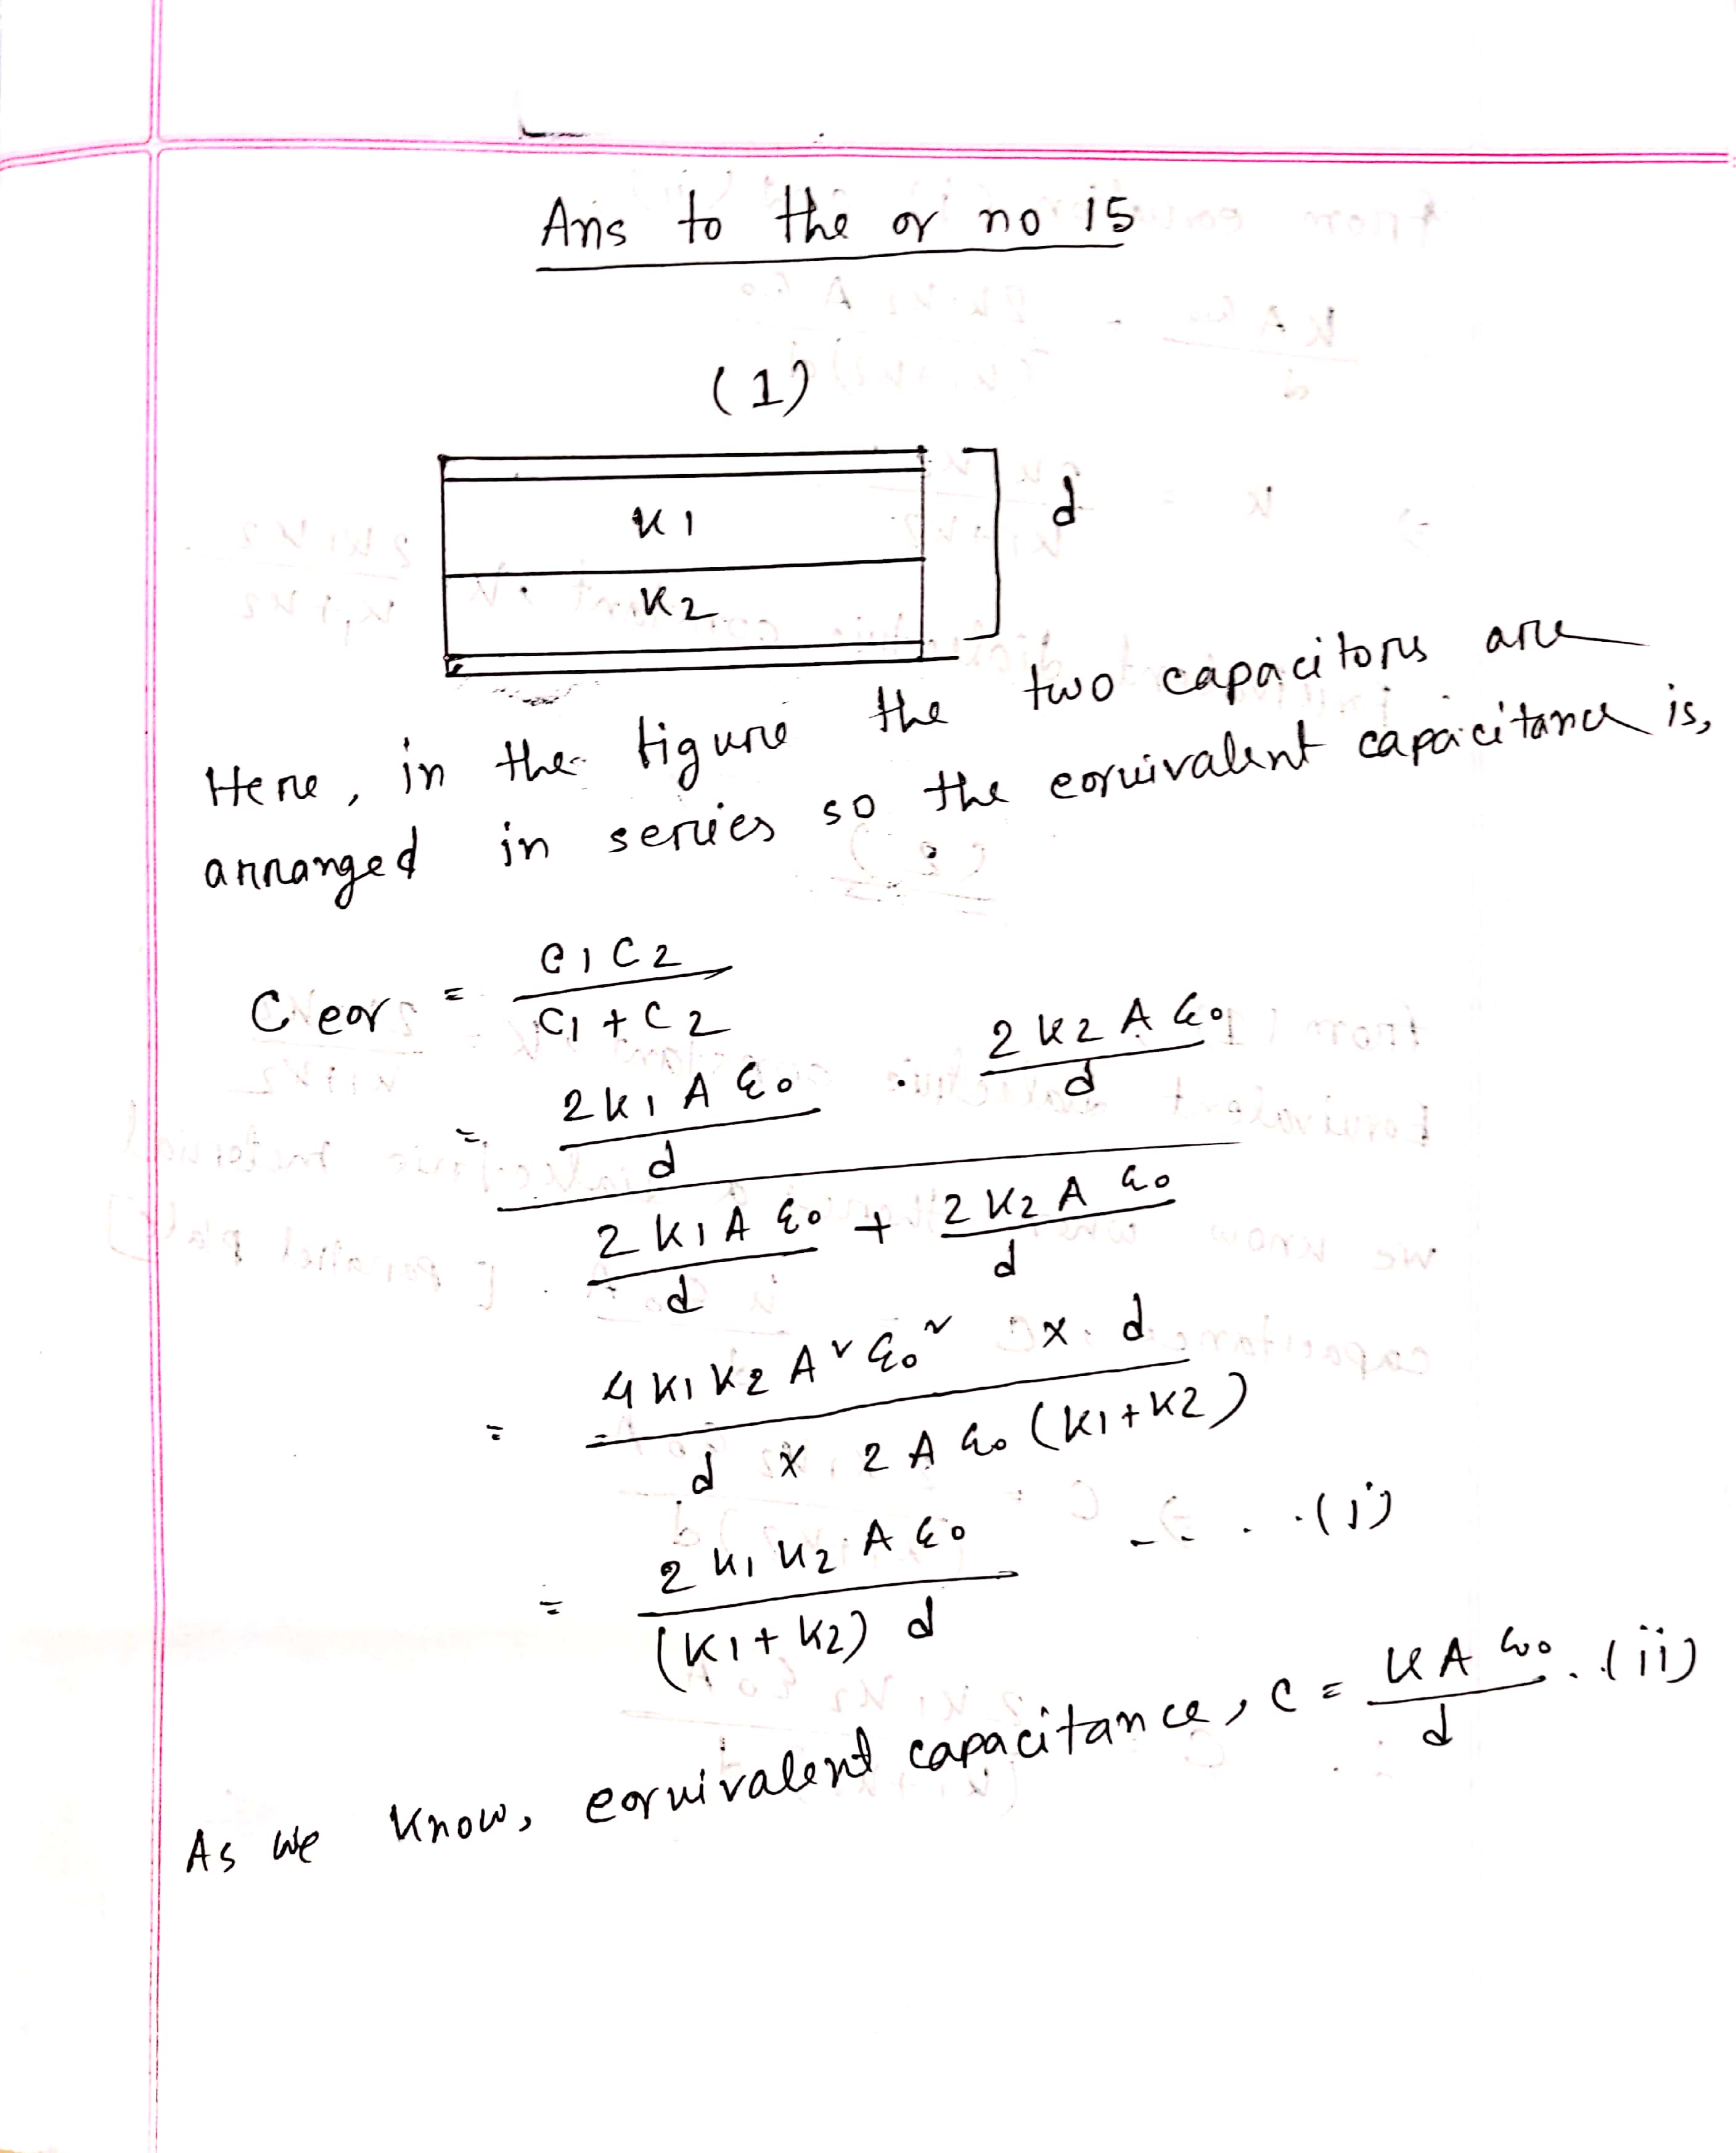 Ans to the qr no 15
(1)
K1
d
K2
Here, in the figure the two capacitors are
arranged in series so the equivalent capacitance is,
C eq = C1C2 / C1 + C2
= 2K1 A ε0 / d . 2K2 A ε0 / d
2 K1 A ε0 / d + 2 K2 A ε0 / d
= 4 K1 K2 A² ε0² × d / d × 2 A ε0 (K1+K2)
= 2 K1 K2 A ε0 / (K1+K2) d - - . . . (i)
As we know, equivalent capacitance, C = K A ε0 / d . . (ii)